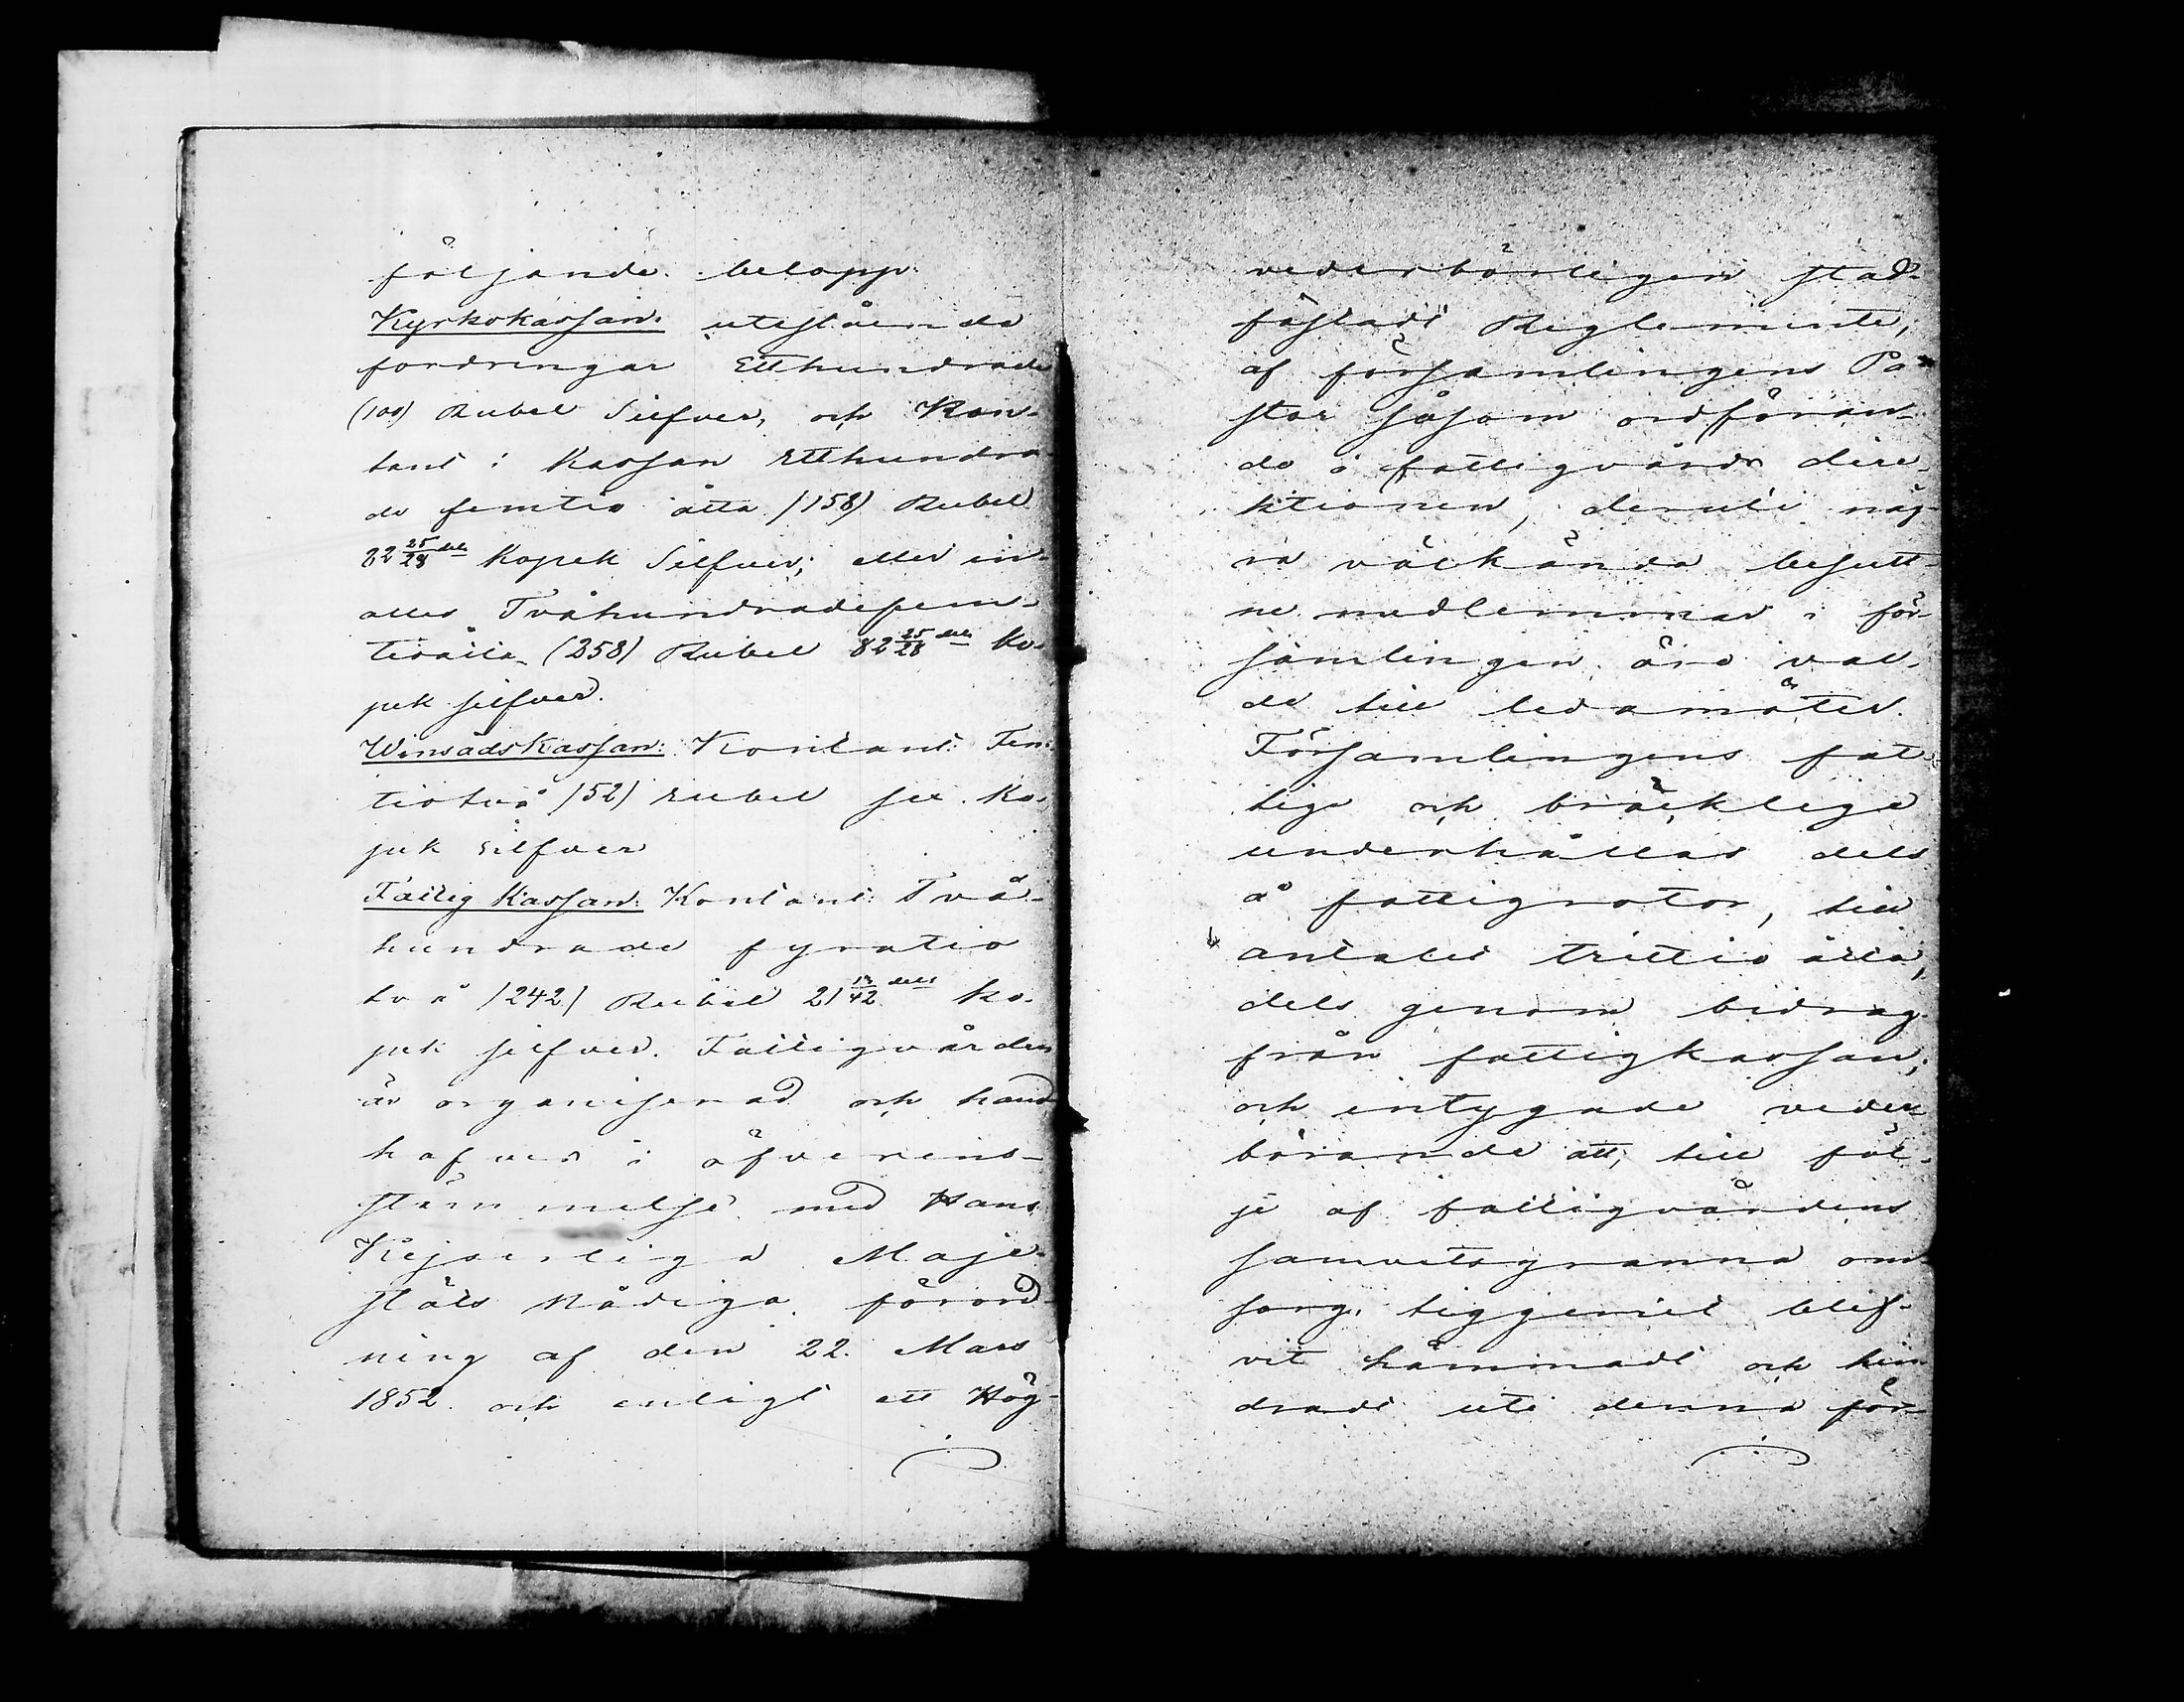 följande belopp:
Kyrkokassan: utestående
fordringar Etthundrade
(100) Rubel Silfver, och Kon-
tant i Kassan Etthundra-
de femtio åtta (158) Rubel
82 25/28 dels Kopek Silfver; eller in-
alles Tvåhundradefem-
tioåtta (258) Rubel 82 25/28 dels Ko-
pek silfver.
Winsädskassan: Kontant: Fem-
tiotvå (52) rubel sex Ko-
pek silfver
Fattig Kassan: Kontant: Två-
hundrade fyratio
två (242) Rubel 21 17/42 dels ko-
pek silfver. Fattigvården
är organiserad och hand-
hafves i öfverens-
stämmelse med Hans
Kejserliga Maje-
stäts Nådiga förord-
ning af den 22. Mars
1852. och enligt ett Hög-
vederbörligen stad-
fästadt Reglemente,
af församlingens Pa-
stor såsom ordföran-
de i fattigvårds dire-
ktionen, deruti någ-
ra välkända besutt-
ne medlemmar i för-
samlingen äro val-
de till ledamöter.
Församlingens fat-
tige och bräcklige
underhållas dels
å fattigrotor, till
antalet trettio åtta,
dels genom bidrag
från fattigkassan;
och intygade veder-
börande att, till föl-
je af fattigvårdens
samvetsgranna om-
sorg, tiggeriet blif-
vit hämmadt och hin-
dradt uti denna för-